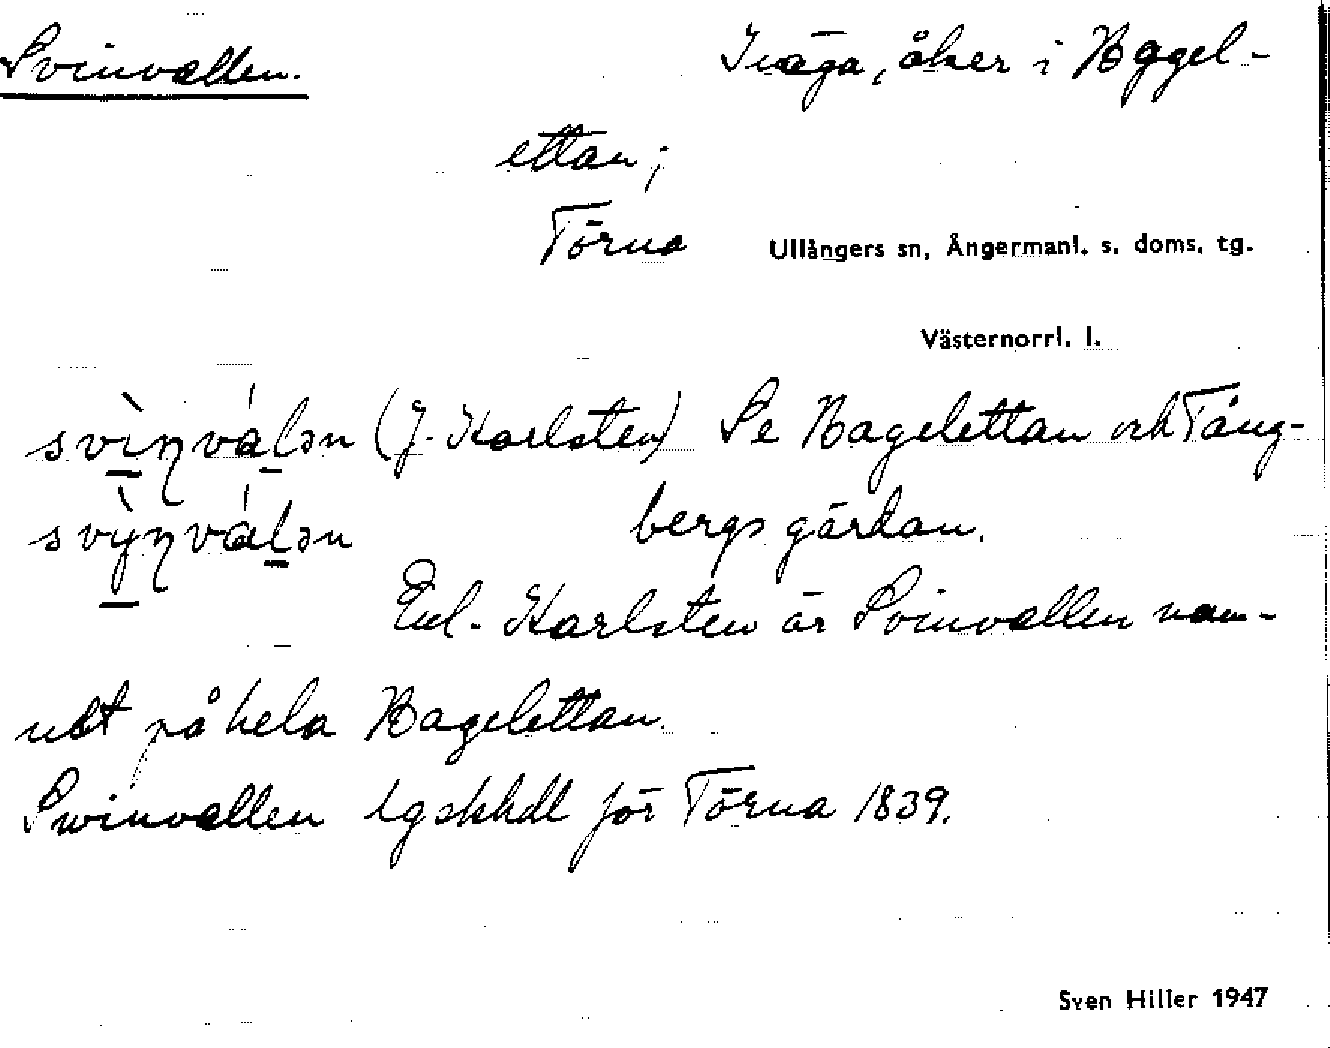 Svinvallen.
Inäga, åker i Bagel-
ettan;
Törna
Ullångers sn, Ångermanl. s. doms. tg.
Västernorrl. l.
svìnválən (J. Karlsten) Se Bagelettan och Tång-
svỳ̠nválən bergsgärdan.
Enl. Karlsten är Svinvallen nam-
net på hela Bagelettan.
Swinvallen lgskhdl för Törna 1839.
Sven Hiller 1947